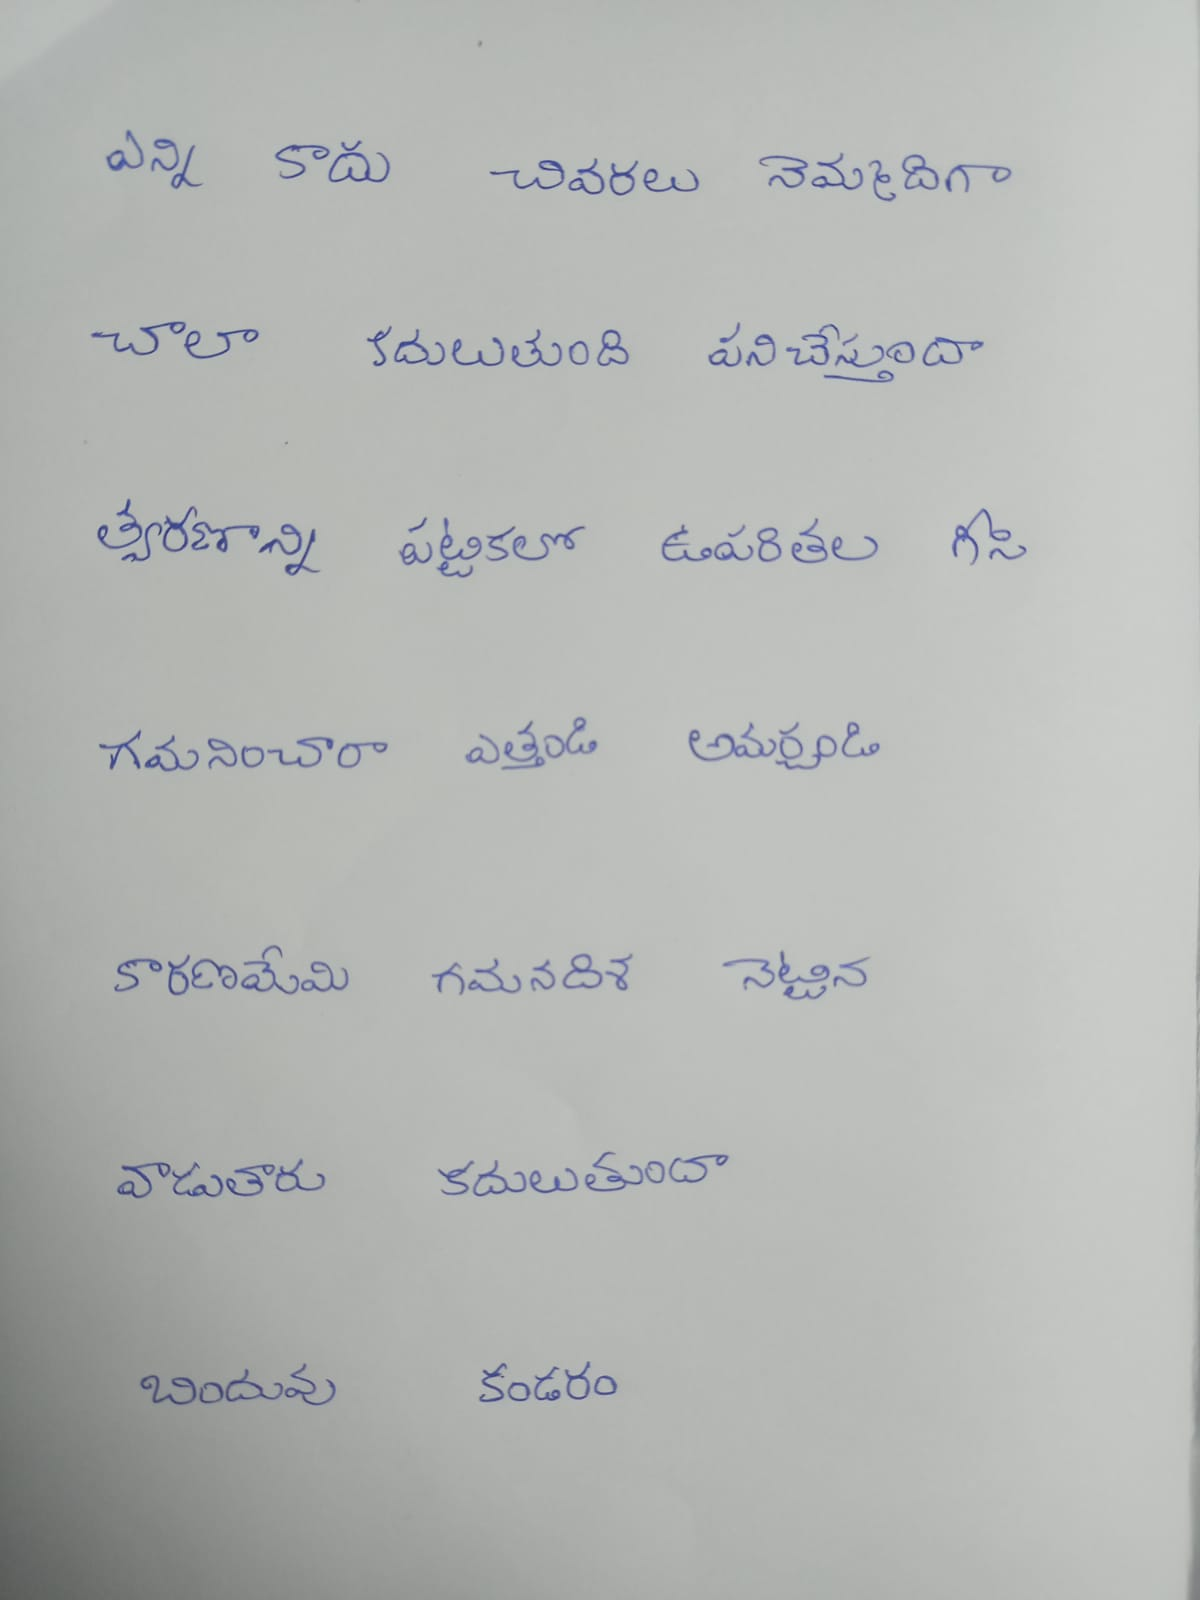 ఎన్ని కాదు చివరలు నెమ్మదిగా
చాలా కదులుతుంది పనిచేస్తుందా
త్వరణాన్ని పట్టికలో ఉపరితల గీసి
గమనించారా ఎత్తండి అమర్చండి
కారణమేమి గమనదిశ నెట్టిన
వాడుతారు కదులుతుందా
బిందువు కండరం